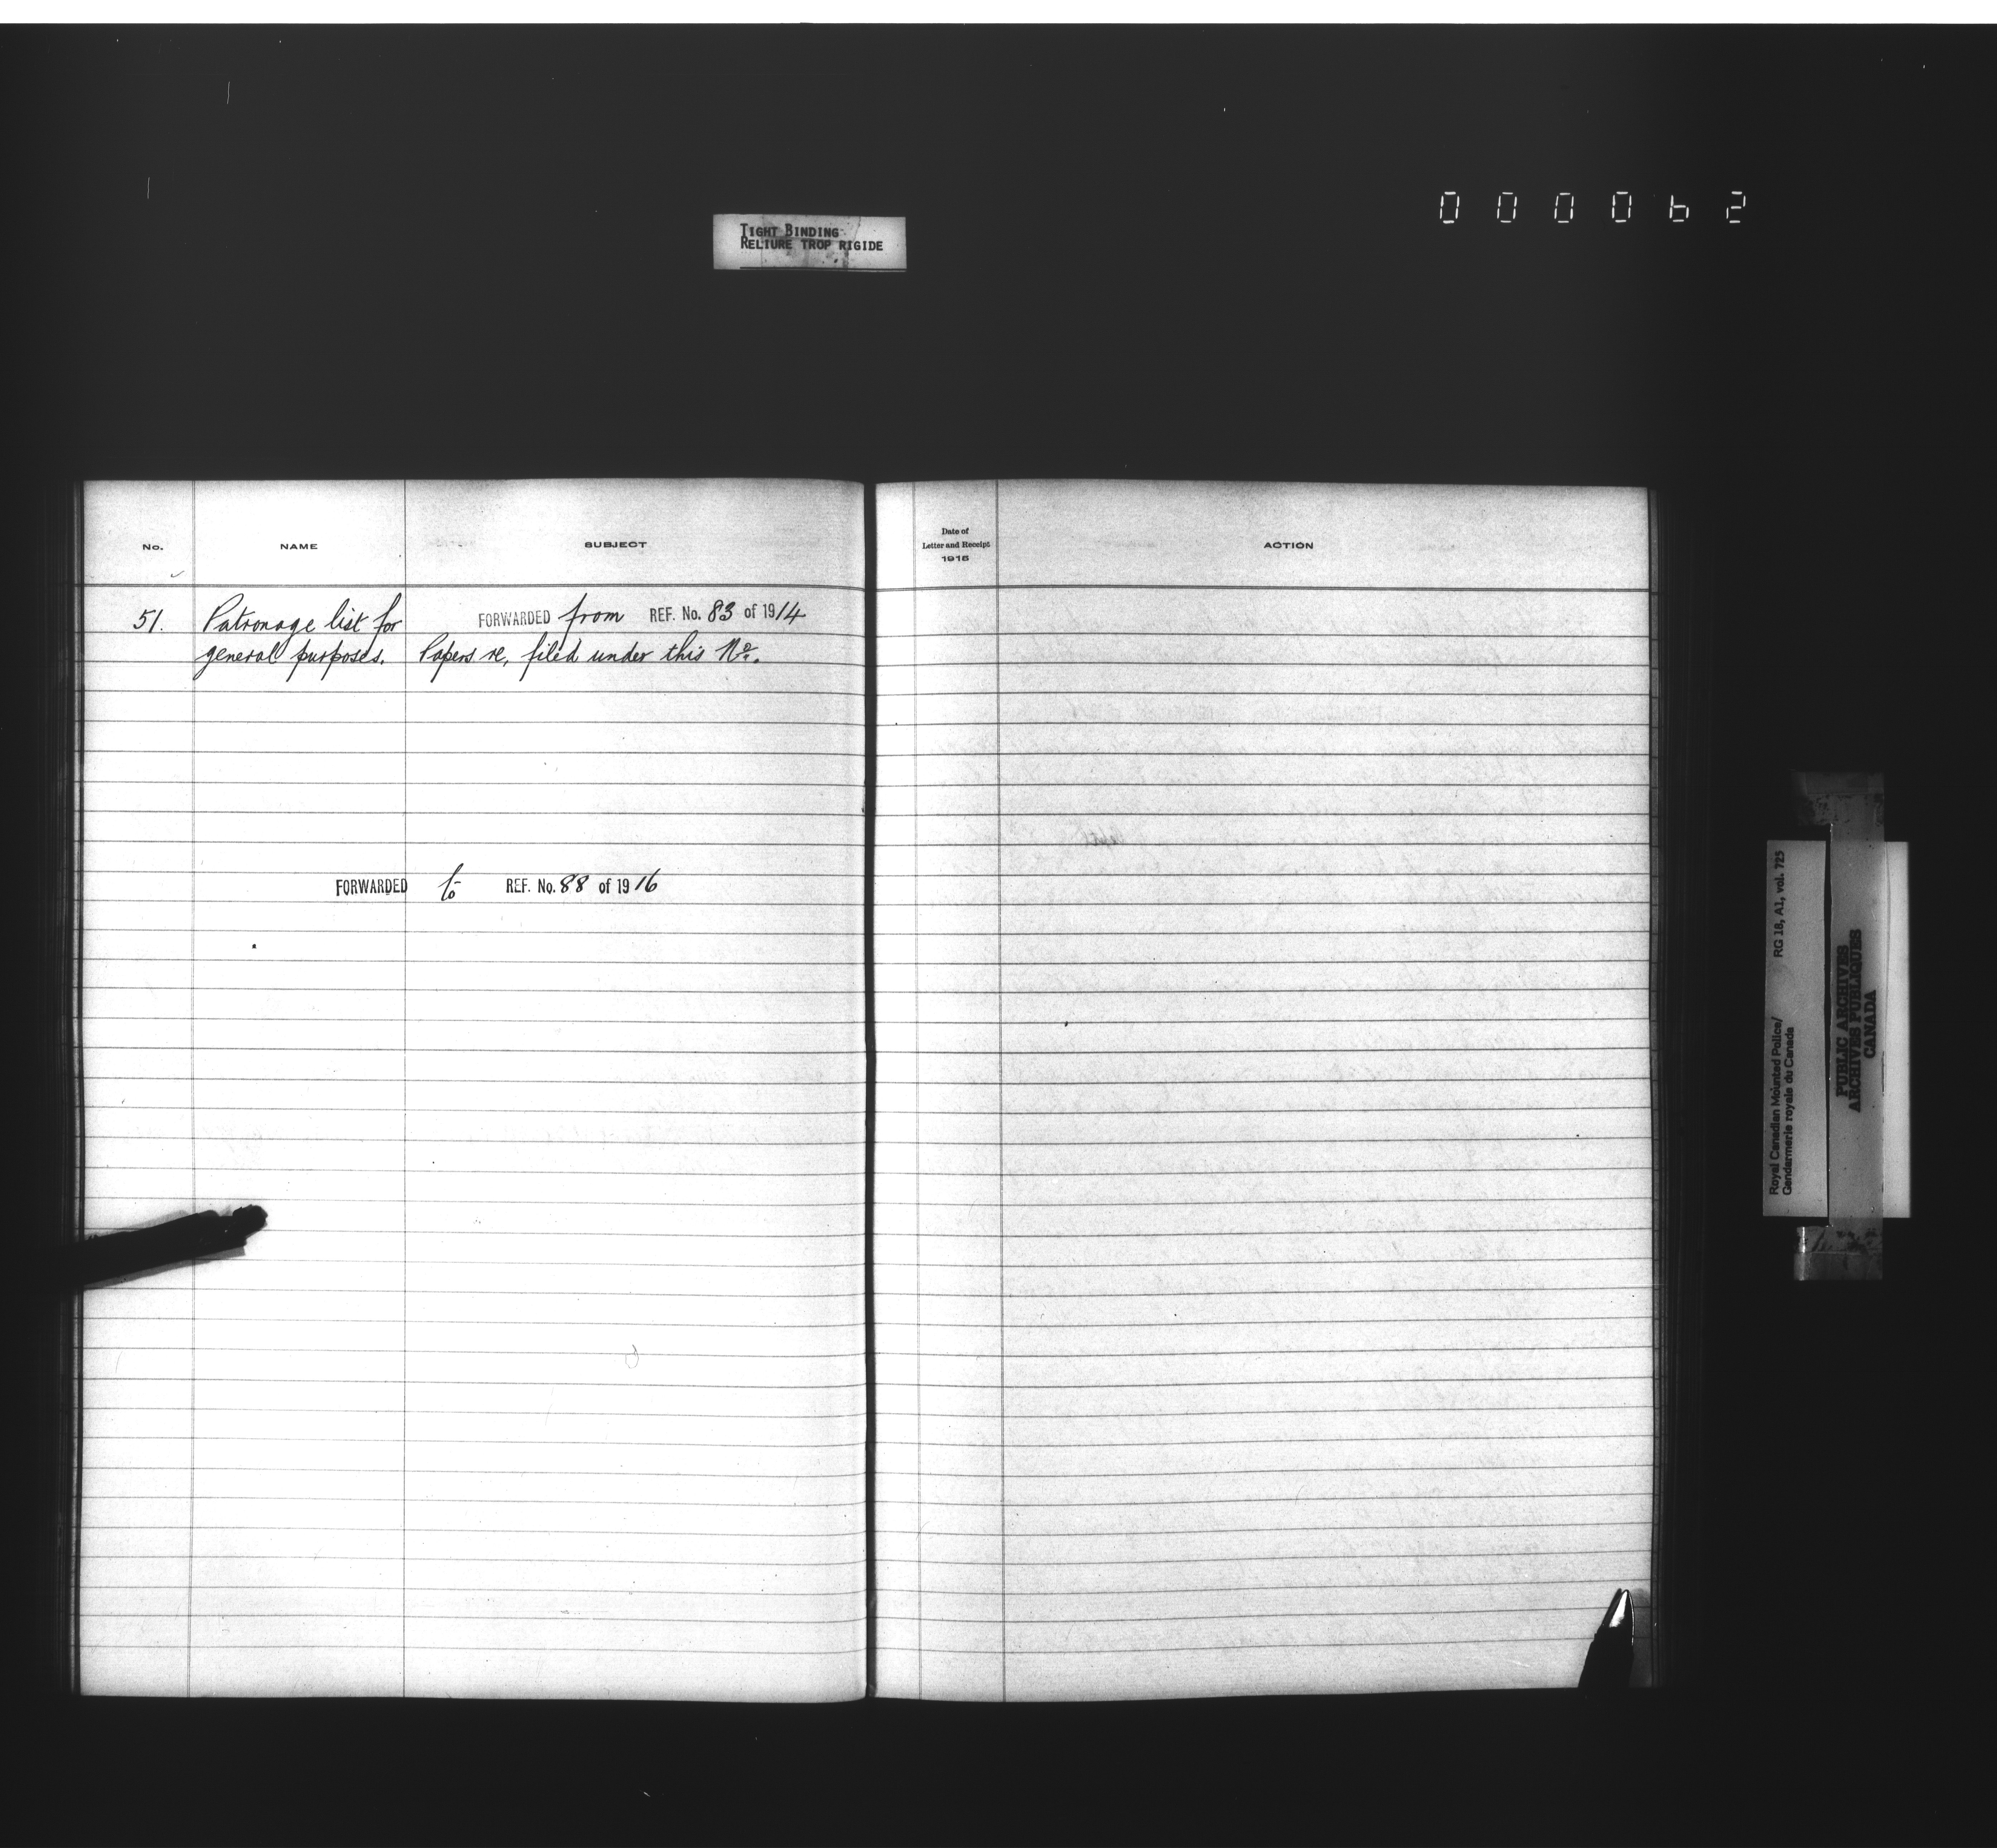 0 0 0 0 6 2
TIGHT BINDING
RELIURE TROP RIGIDE
No. NAME SUBJECT
Date of
Letter and Receipt
1915
ACTION
51. Patronage list for FORWARDED from REF. No. 83 of 1914
general purposes. Papers re, filed under this No.
FORWARDED to REF. No. 88 of 1916
Royal Canadian Mounted Police/ RG 18, A1, vol. 725
Gendarmerie royale du Canada
PUBLIC ARCHIVES
ARCHIVES PUBLIQUES
CANADA